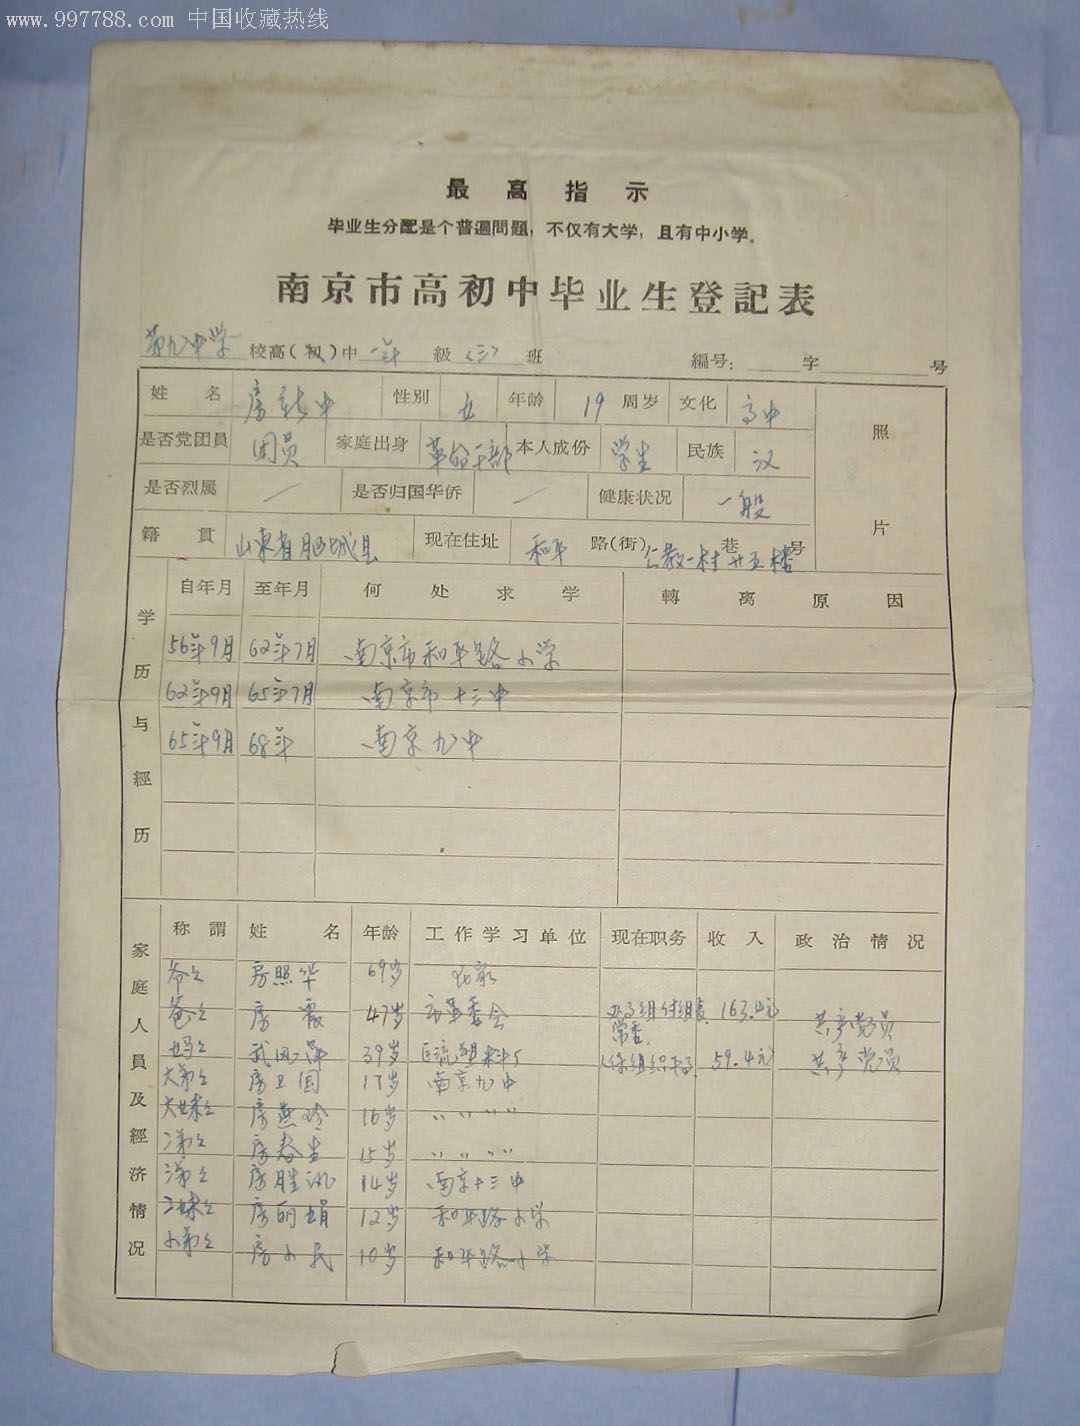 www.997788.com 中国收藏热线
最高指示
毕业生分配是个普遍問題，不仅有大学，且有中小学。
南京市高初中毕业生登記表
第九中学 校高(初)中 級 (三) 班 編号： 字 号
姓名 房 中 性别 女 年龄 19 周岁 文化 高中 照片
是否党团員 团员 家庭出身 革命干部 本人成份 学生 民族 汉
是否烈属 — 是否归国华侨 — 健康状况 一般
籍貫 山東省肥城县 现在住址 和平 路(街) 公教一村廿五楼 巷 号
学历与經历
自年月 至年月 何处求学 轉离原因
56年9月 62年7月 南京市和平路小学
62年9月 65年7月 南京市十三中
65年9月 68年 南京九中
家庭人員及經济情况
称謂 姓名 年龄 工作学习单位 现在职务 收入 政治情况
爷々 房照华 69岁 在家
爸々 房震 47岁 市革委会 组付组長 常委 163.4元 共产党员
妈々 武凤萍 39岁 塑料厂 组织干事 59.4元 共产党员
大弟々 房卫国 17岁 南京九中
大妹々 房燕玲 16岁 〃 〃 〃 〃
二弟々 房春生 15岁 〃 〃 〃 〃
三弟々 房胜利 14岁 南京十三中
二妹々 房丽娟 12岁 和平路小学
小弟々 房小民 10岁 和平路小学